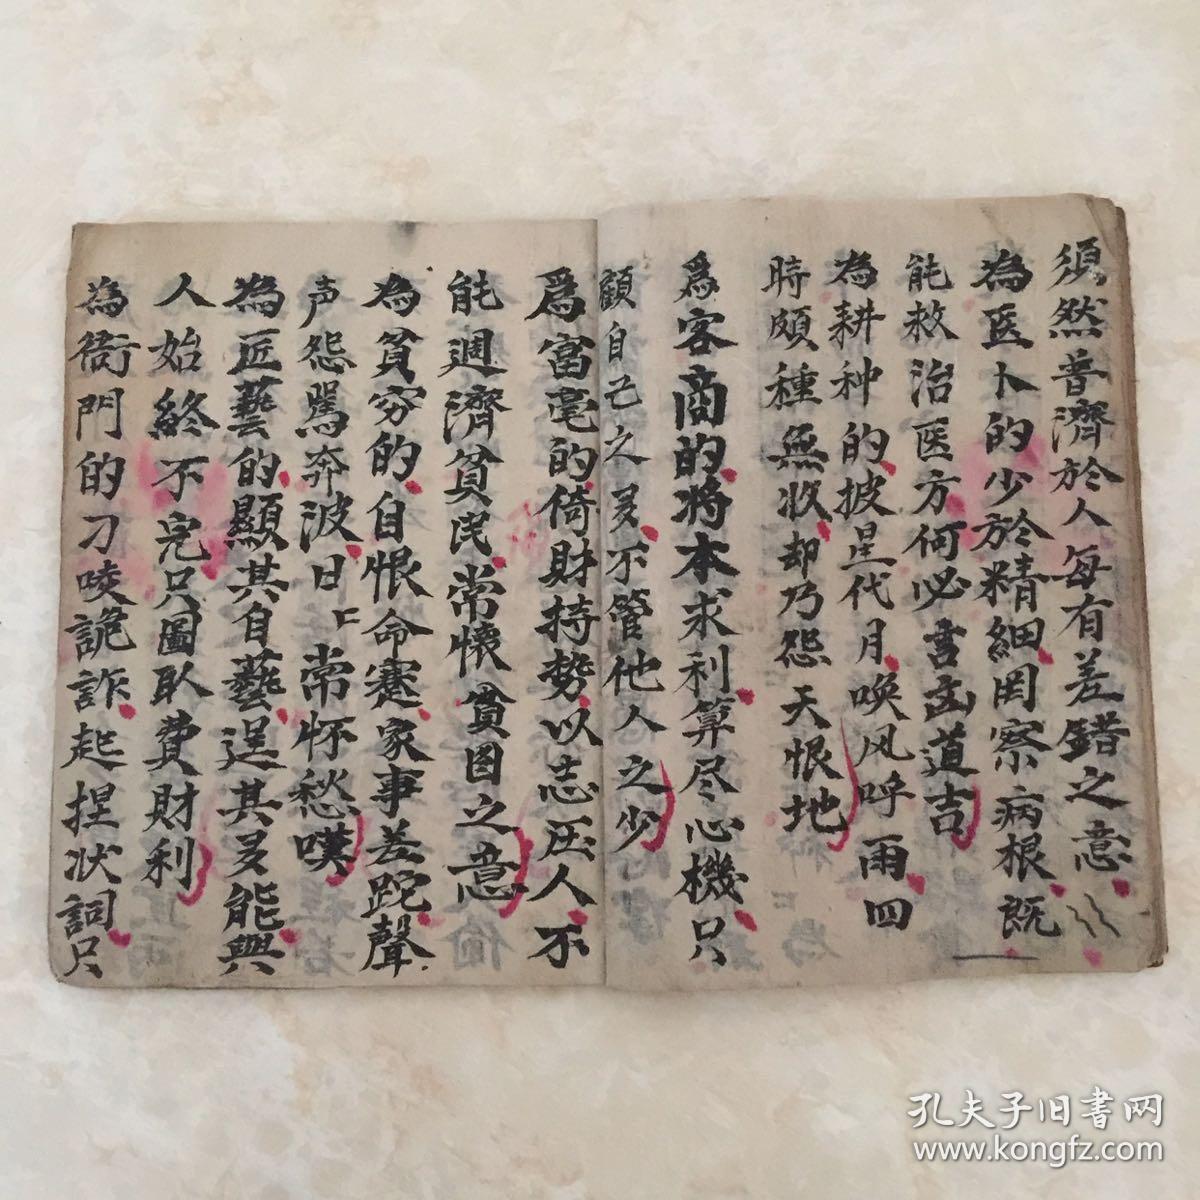 須然普濟於人每有差錯之意
為医卜的少於精細罔察病根既
能救治医方何必言凶道吉
為耕种的披星代月喚风呼雨四
時頗種無收却乃怨天恨地
爲客商的将本求利算尽心機只
顧自己之多不管他人之少
爲富毫的倚財持势以志压人不
能週濟貧民常懷貧图之意
為貧穷的自恨命蹇家事差跎聲
声怨駡奔波日二常怀愁嘆
為匠藝的顯其自藝逞其多能與
人始終不完只圖臥費財利
為衙門的刁唆詭詐起捏状詞只
孔夫子旧書网
www.kongfz.com